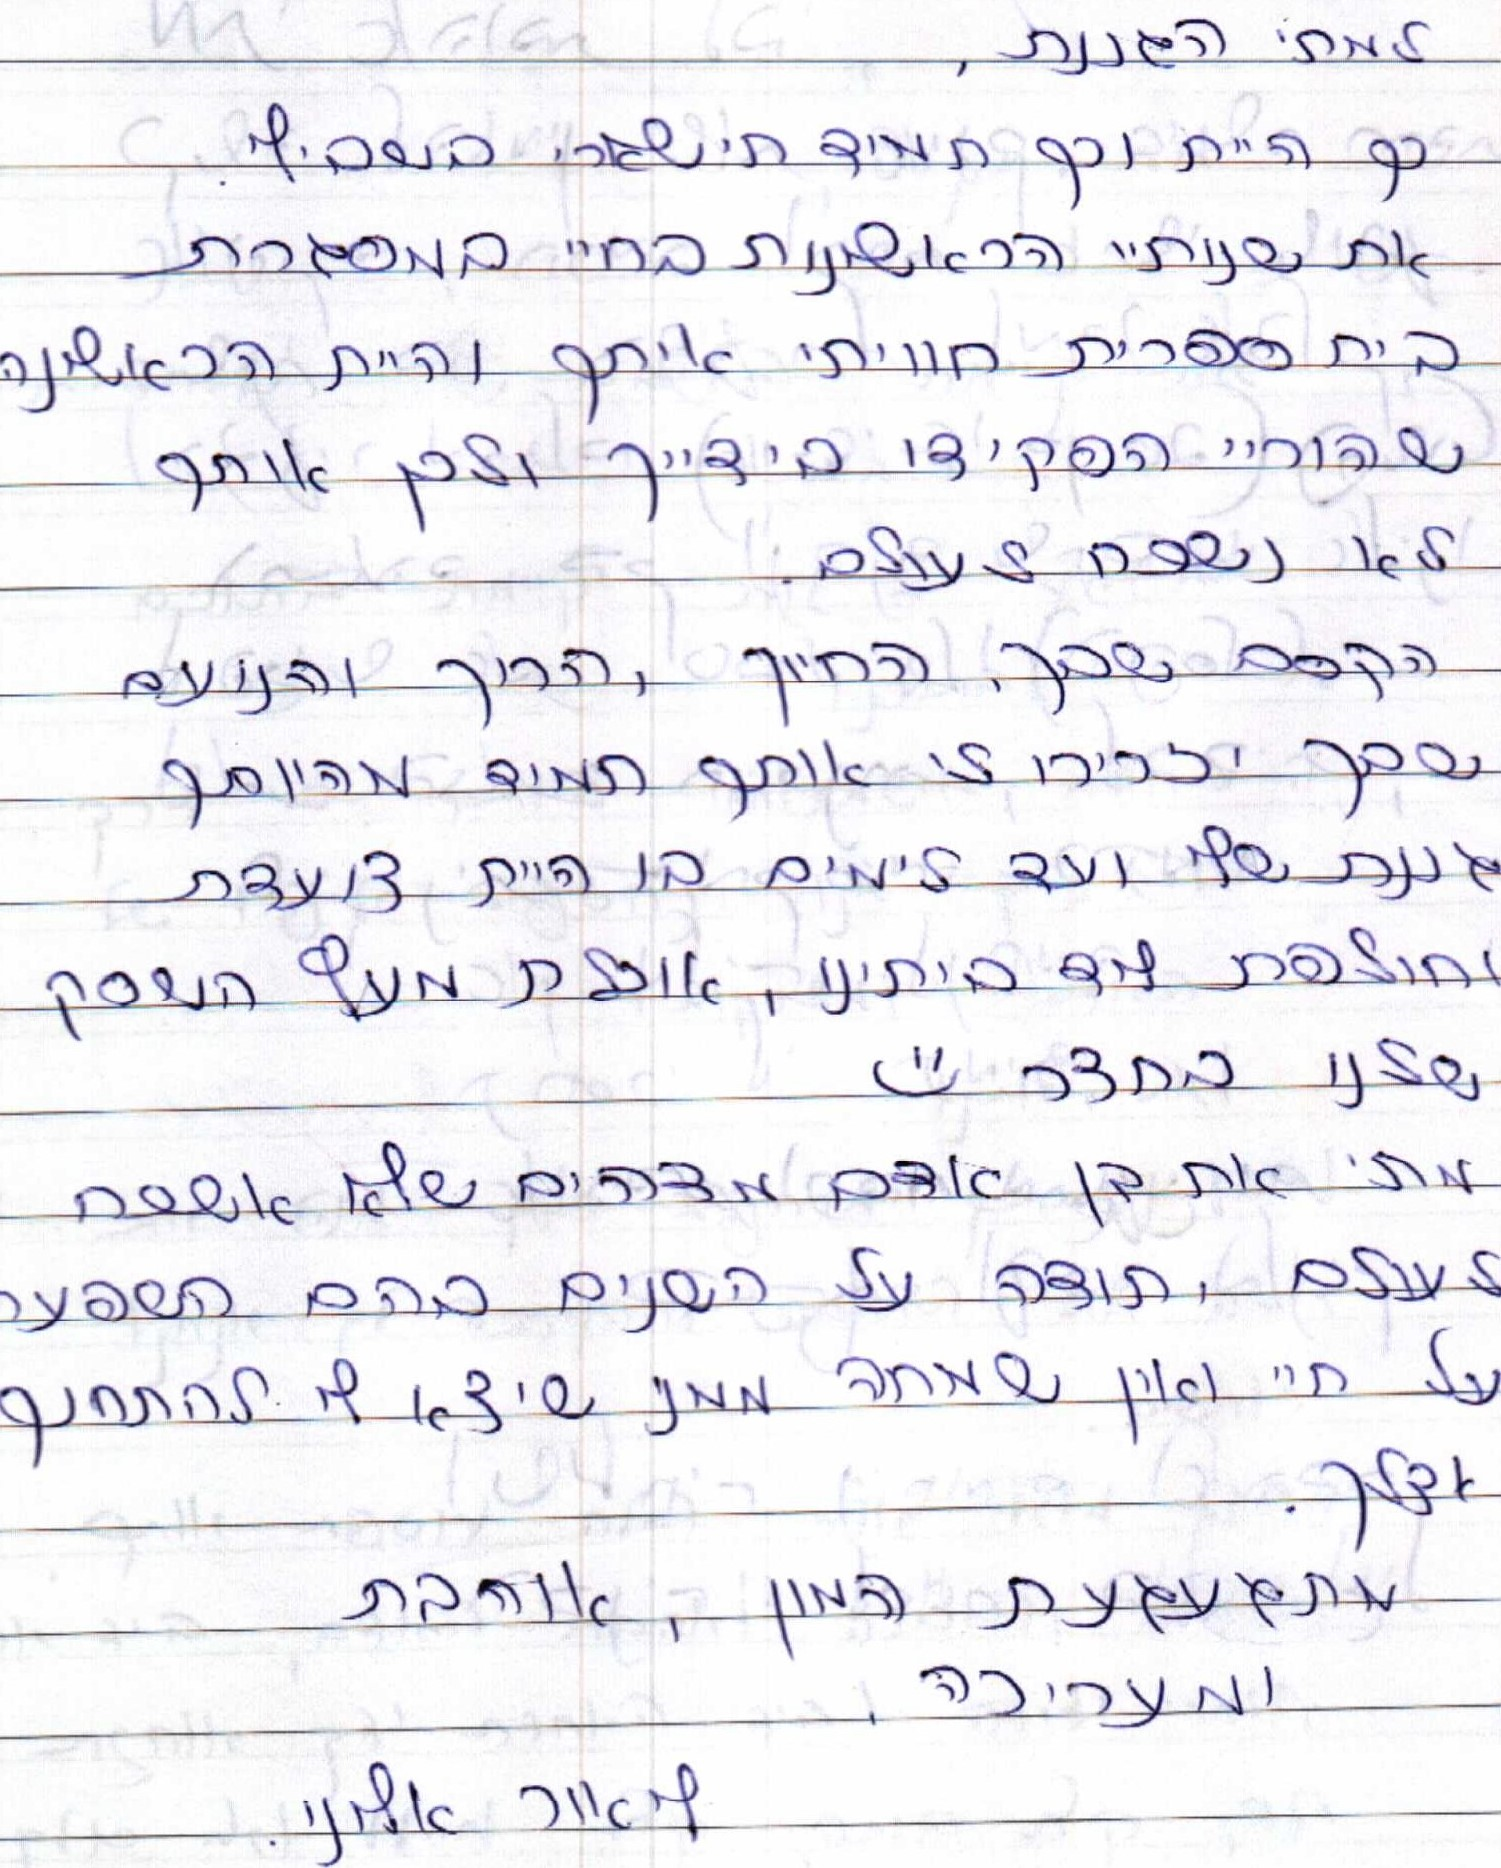 למתי הגננת,
כך היית וכך תמיד תישארי בשבילי.
את שנותיי הראשונות בחיי במסגרת
בית ספרית חוויתי איתך והיית הראשונה
שהוריי הפקידו בידייך ולכן אותך
לא נשכח לעולם.
הקסם שבך, החיוך, הרוך והנועם
שבך יזכירו לי אותך תמיד מהיותך
גננת שלי ועד לימים בו היית צועדת
וחולפת ליד ביתינו, אוכלת מעלי השסק
שלנו בחצר
מתי את בן אדם מדהים שלא אשכח
לעולם, תודה על השנים בהם השפעת
על חיי ואין שמחה ממני שיצא לי להתחנך
אצלך.
מתגעגעת המון, אוהבת
ומעריכה,
ליאור אלוני.